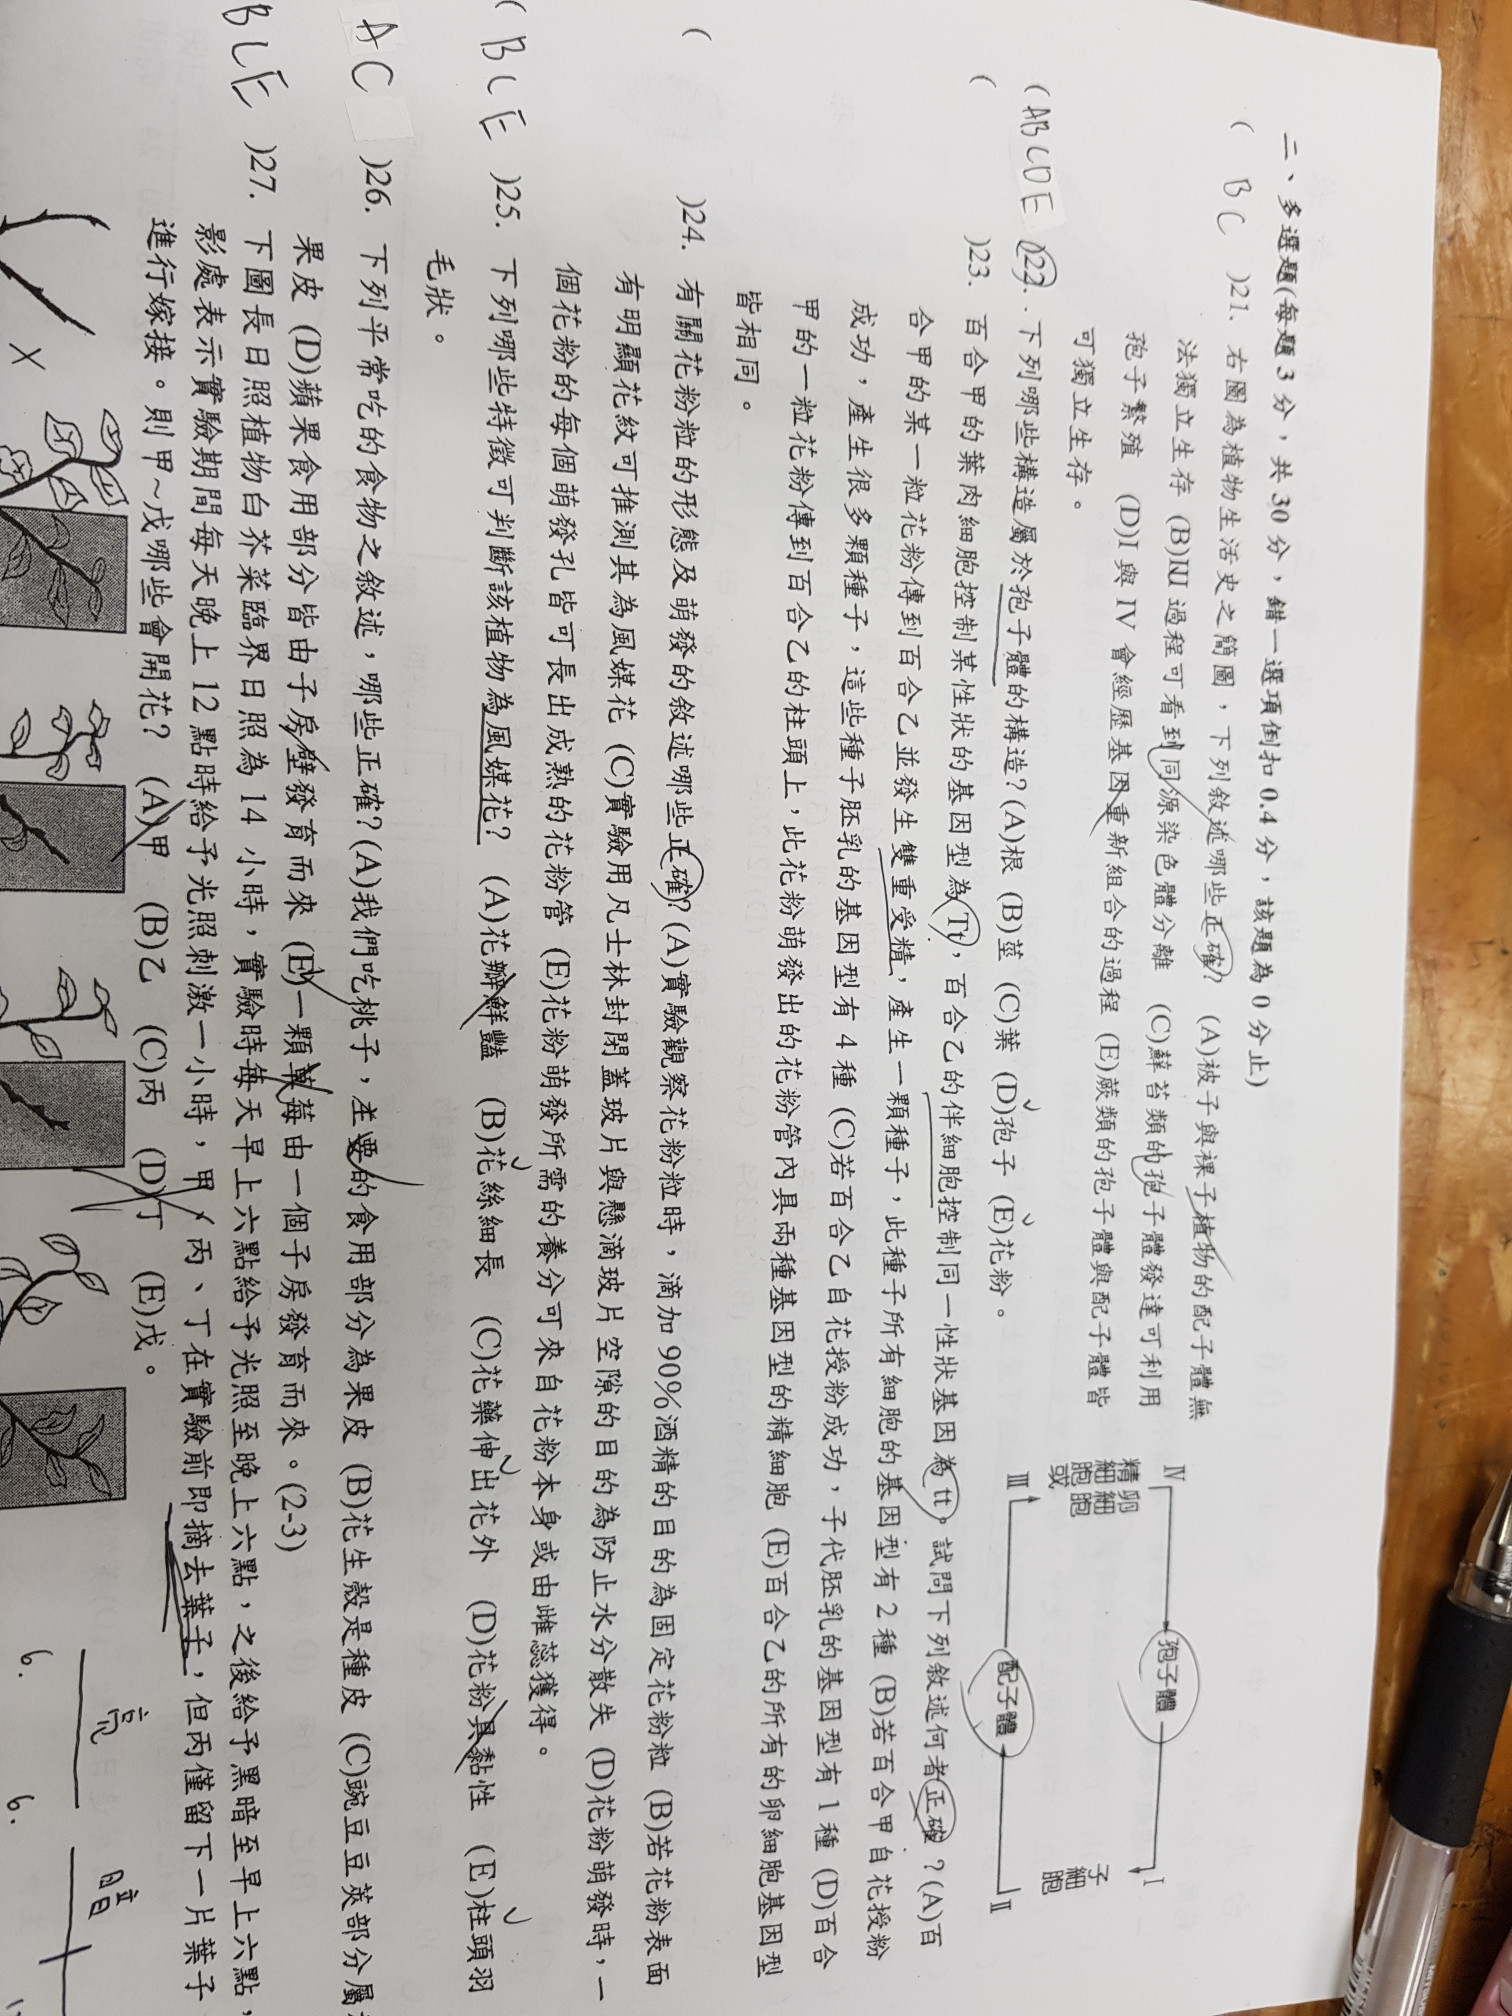 二、多選題(每題3分，共30分，錯一選項倒扣0.4分，該題為0分止)
( BC )21. 右圖為植物生活史之簡圖，下列敘述哪些正確? (A)被子與裸子植物的配子體無
法獨立生存 (B)NI過程可看到同源染色體分離 (C)蘚苔類的孢子體發達可利用
孢子繁殖 (D)I與IV會經歷基因重新組合的過程 (E)蕨類的孢子體與配子體皆
可獨立生存。
IV
孢子體
I
卵細胞
精細胞或
子細胞
III
配子體
II
(ABCDE )22. 下列哪些構造屬於孢子體的構造? (A)根 (B)莖 (C)葉 (D)孢子 (E)花粉。
( )23. 百合甲的葉肉細胞控制某性狀的基因型為Tt，百合乙的伴細胞控制同一性狀基因為tt。試問下列敘述何者正確?(A)百
合甲的某一粒花粉傳到百合乙並發生雙重受精，產生一顆種子，此種子所有細胞的基因型有2種 (B)若百合甲自花授粉
成功，產生很多顆種子，這些種子胚乳的基因型有4種 (C)若百合乙自花授粉成功，子代胚乳的基因型有1種 (D)百合
甲的一粒花粉傳到百合乙的柱頭上，此花粉萌發出的花粉管內具兩種基因型的精細胞 (E)百合乙的所有的卵細胞基因型
皆相同。
( )24. 有關花粉粒的形態及萌發的敘述哪些正確? (A)實驗觀察花粉粒時，滴加90%酒精的目的為固定花粉粒 (B)若花粉表面
有明顯花紋可推測其為風媒花 (C)實驗用凡士林封閉蓋玻片與懸滴玻片空隙的目的為防止水分散失 (D)花粉萌發時，一
個花粉的每個萌發孔皆可長出成熟的花粉管 (E)花粉萌發所需的養分可來自花粉本身或由雌蕊獲得。
( BCE )25. 下列哪些特徵可判斷該植物為風媒花? (A)花瓣鮮豔 (B)花絲細長 (C)花藥伸出花外 (D)花粉具黏性 (E)柱頭羽
毛狀。
AC )26. 下列平常吃的食物之敘述，哪些正確? (A)我們吃桃子，主要的食用部分為果皮 (B)花生殼是種皮 (C)豌豆豆莢部分屬
果皮 (D)蘋果食用部分皆由子房壁發育而來 (E)一顆草莓由一個子房發育而來。(2-3)
BCE )27. 下圖長日照植物白芥菜臨界日照為14小時，實驗時每天早上六點給予光照至晚上六點，之後給予黑暗至早上六點，
影處表示實驗期間每天晚上12點時給予光照刺激一小時，甲、丙、丁在實驗前即摘去葉子，但丙僅留下一片葉子
進行嫁接。則甲~戊哪些會開花? (A)甲 (B)乙 (C)丙 (D)丁 (E)戊。
亮 暗
6. 6.